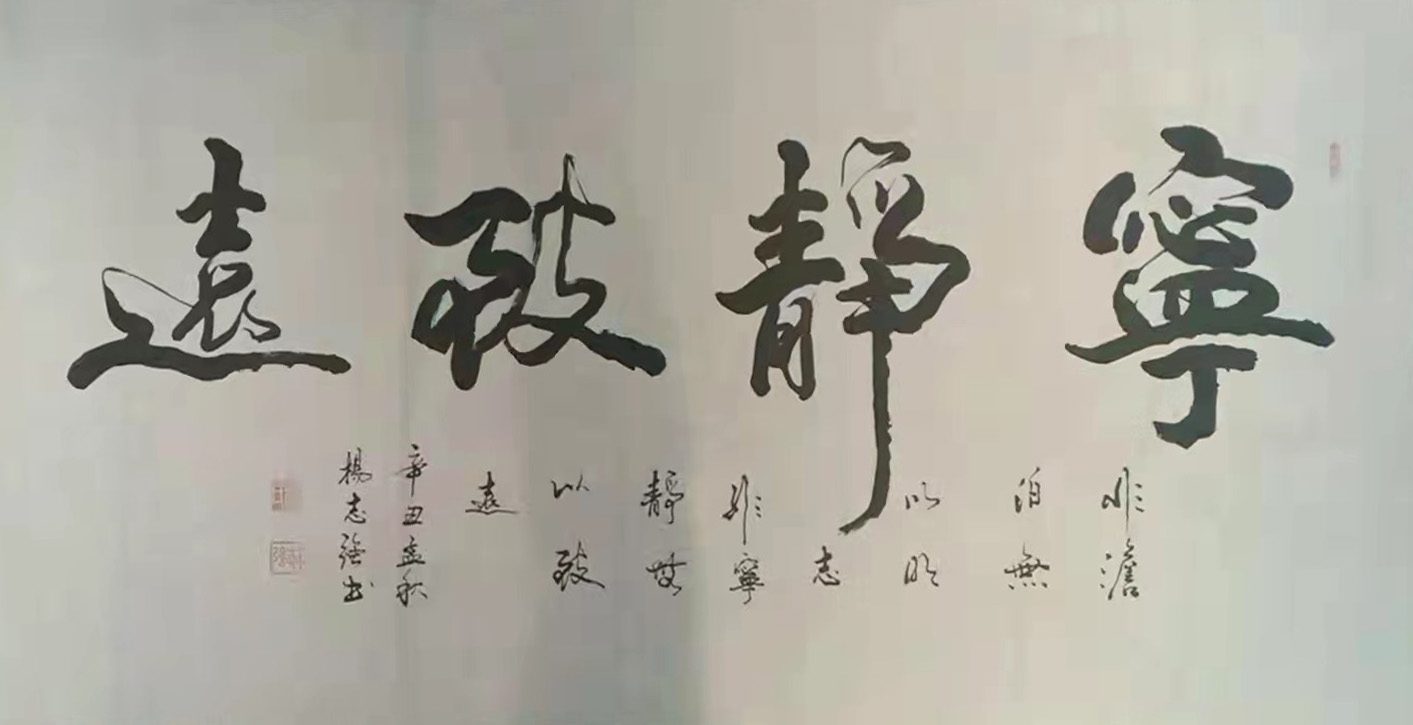 寧靜致遠
非澹
泊無
以明
志
非寧
靜無
以致
遠
辛丑孟秋
楊志強书